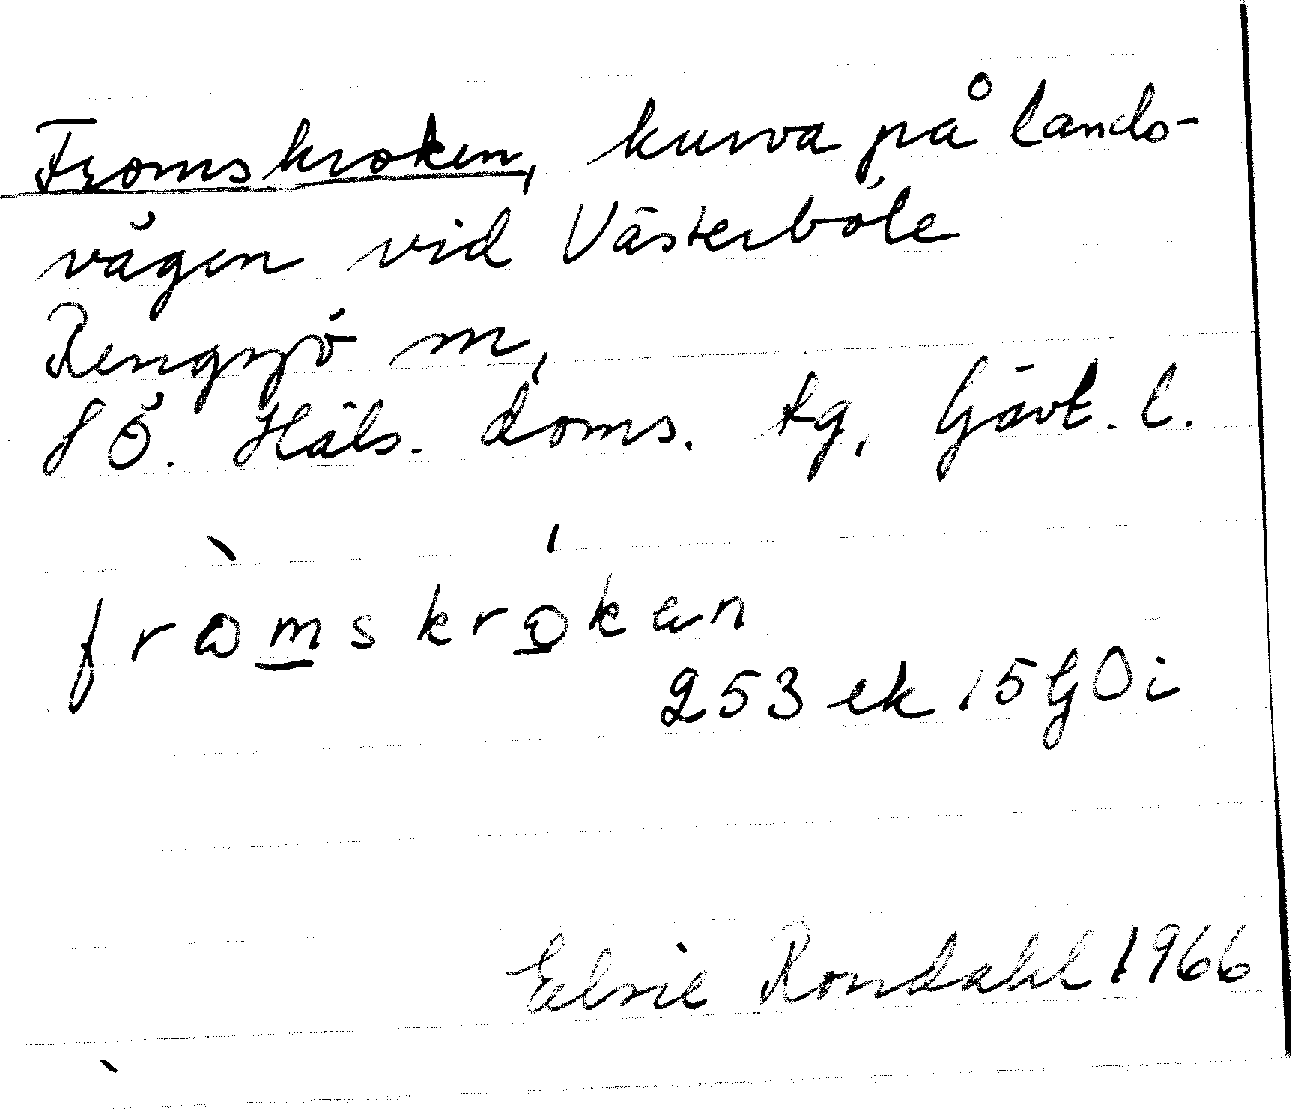 Fromskroken, kurva på lands-
vägen vid Västerböle
Rengsjö sn,
SÖ. Häls. doms. tg, Gävl. l.
fròmskrókan
253 ek 15G0i
Elsie Rondahl 1966